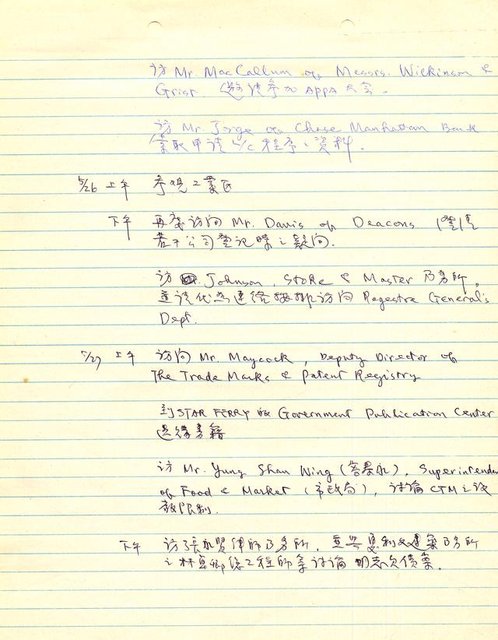 訪 Mr. MacCallum of Messrs. Wilkinson &
Grist. 邀請參加 APPA 大會.
訪 Mr. Jorge of Chase Manhattan Bank
索取申請 L/C 程序、資料.
5/26 上午 參觀工業區
下午 再度訪問 Mr. Davis of Deacons
若干公司登記時之疑問.
訪 Johnson, Stoke & Master 事務所,
並請代為連絡按排訪問 Registra General's
Dept.
5/27 上午 訪問 Mr. Maycock, Deputy Director of
The Trade Marks & Patent Registry
到 STAR FERRY 的 Government Publication Center
選讀書籍
訪 Mr. Yung Shan Wing (容), Superintenden
of Food & Market (市政局), 討論 CTM 之
限制.
下午 訪張律師事務所, 並與建築事務所
之林工程師等討論